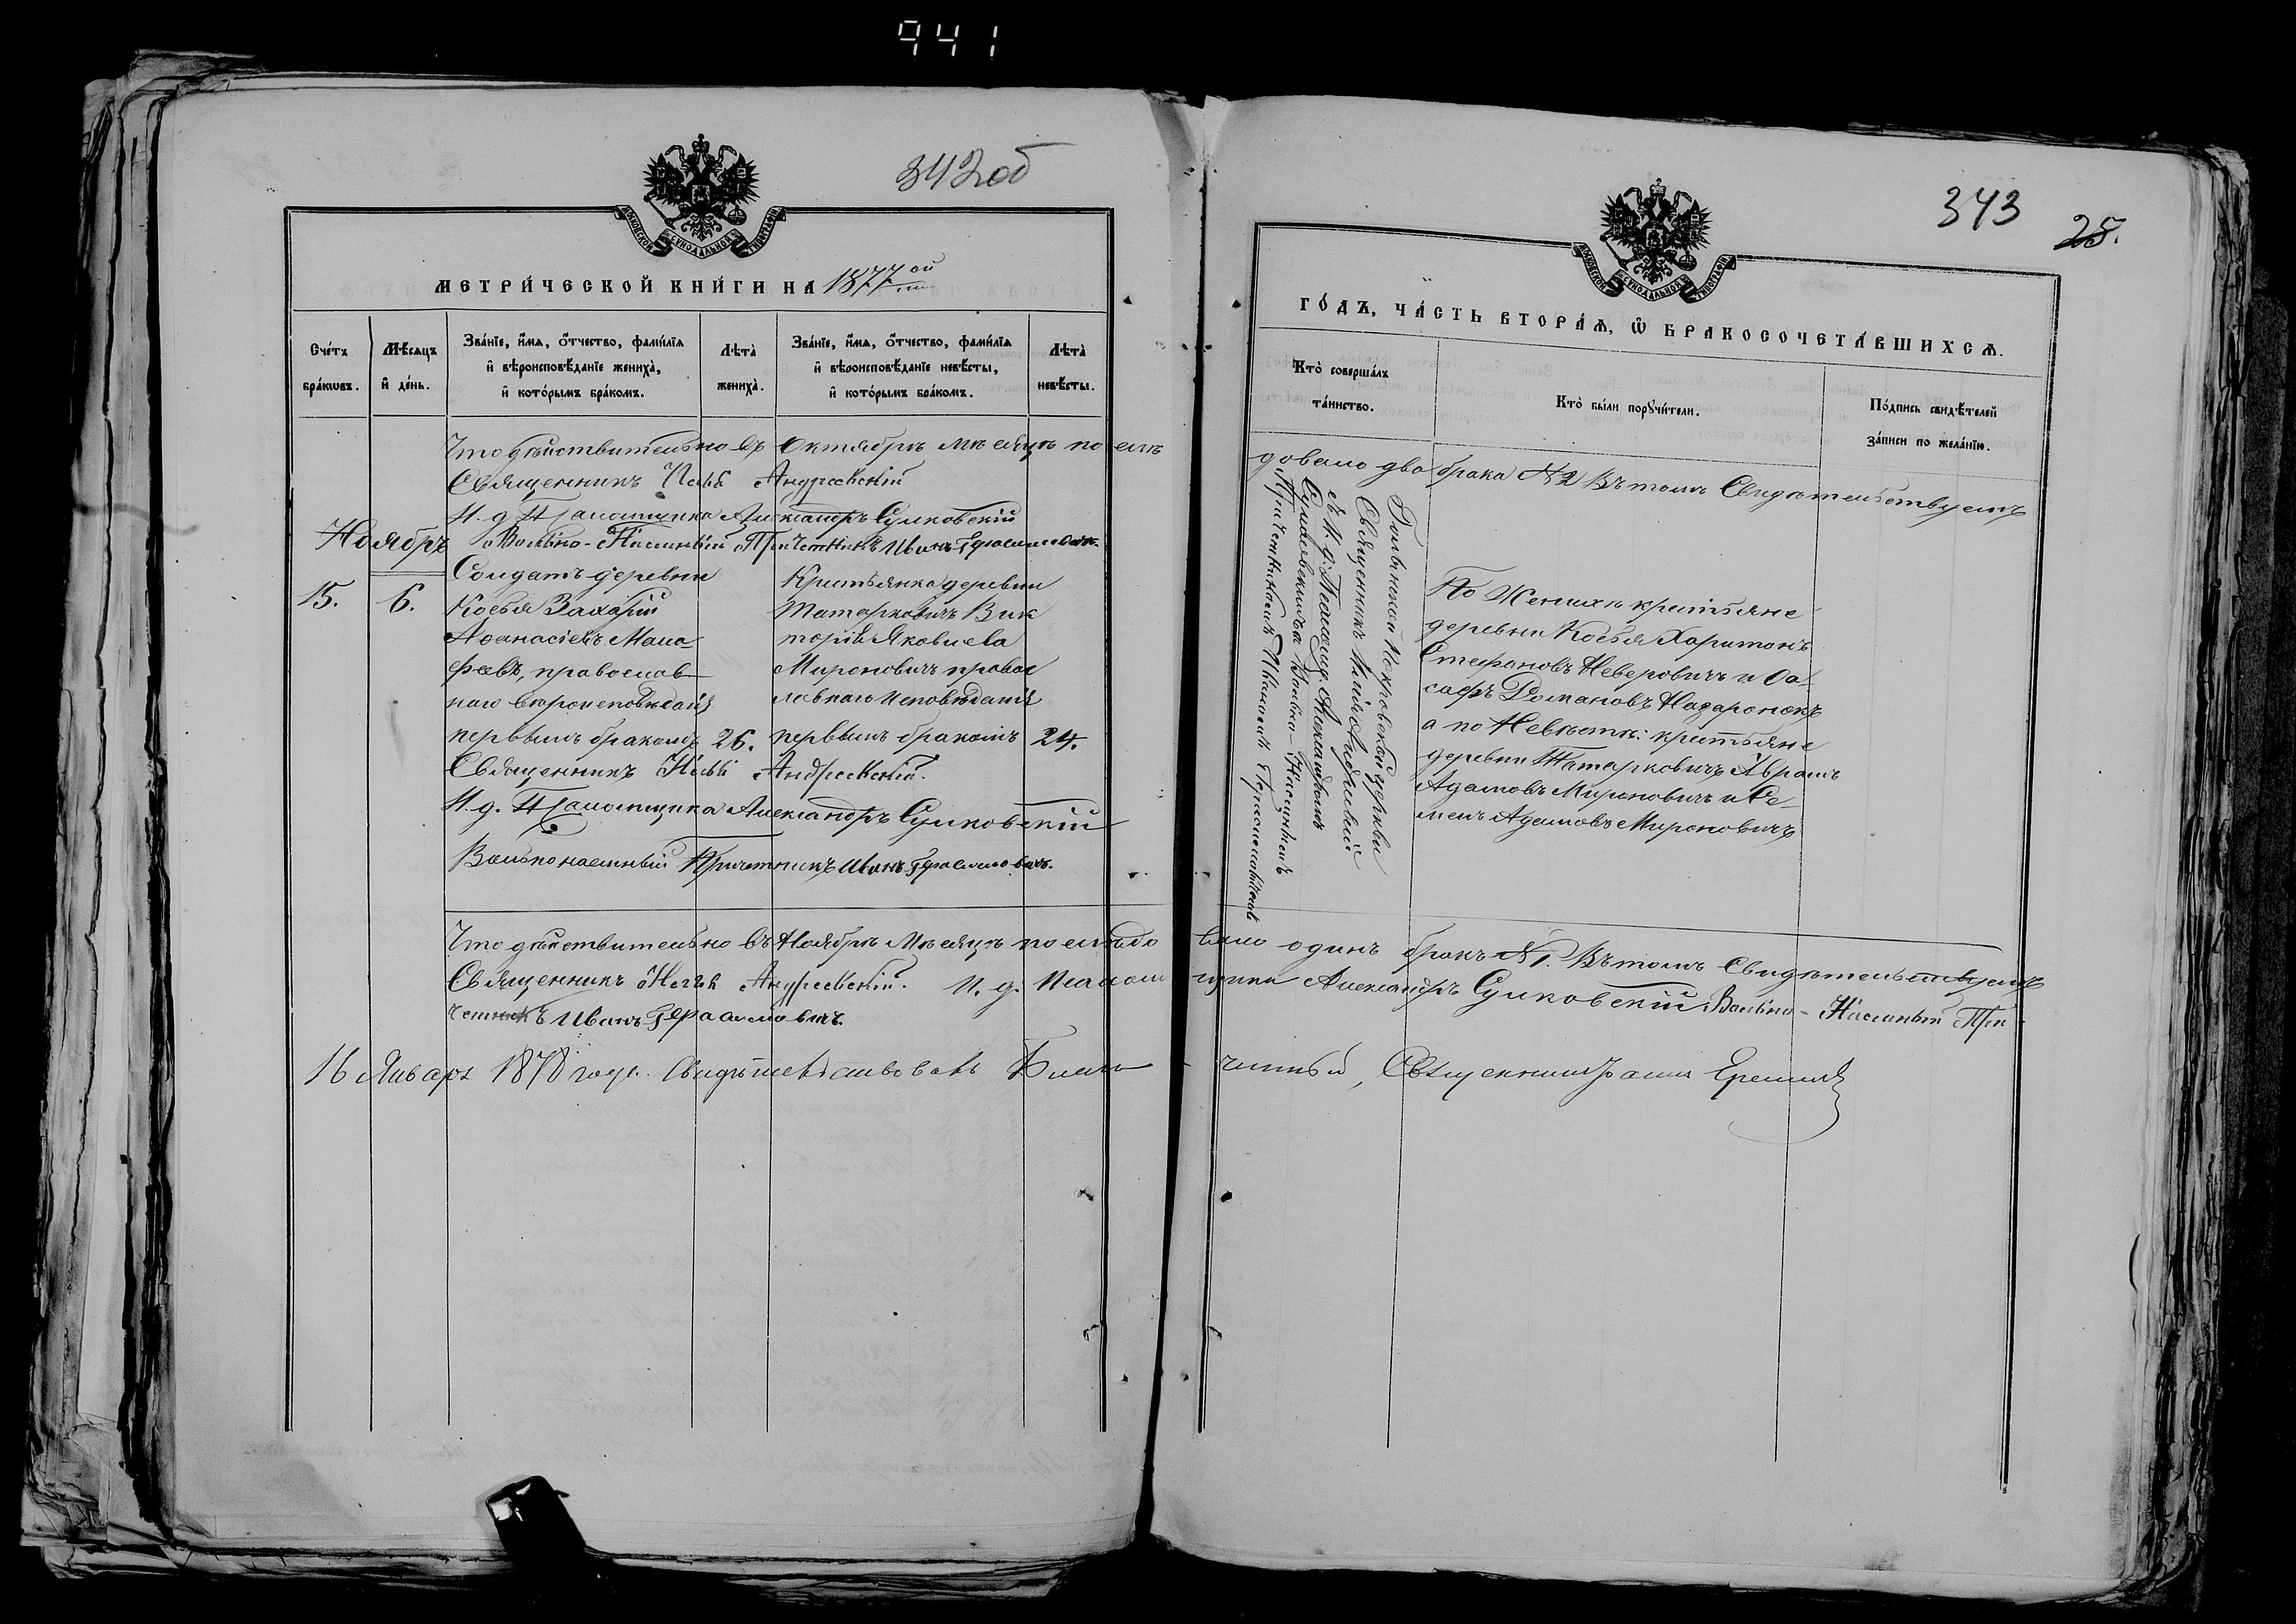 941
342об
МОСКОВСКОЙ СѴНОДАЛЬНОЙ ТИПОГРАФІИ
МЕТРИ́ЧЕСКОЙ КНИ́ГИ НА 1877 ой
Сче́тъ бра́кωвъ.
Мѣ́сяцъ и҆ де́нь.
Зва́нїе, и҆́мѧ, ѻ҆́тчество, фами́лїѧ и҆ вѣроисповѣ́данїе женихà, и҆ кото́рымъ бра́комъ.
Лѣ́та женихà.
Зва́нїе, и҆́мѧ, ѻ҆́тчество, фами́лїѧ и҆ вѣроисповѣ́данїе невѣ́сты, и҆ кото́рымъ бра́комъ.
Лѣ́та невѣ́сты.
Что дѣйствительно въ Октябрѣ мѣсяцѣ послѣ
Священникъ Андреевскій
И. д. Псаломщика Александръ Сулковскій
Ноябрь
Вольно-Наемный Причетникъ Иванъ Герасимовичъ
15.
6.
Солдатъ деревни
Косья Захарій
Аѳанасіевъ Мала-
феевъ, православ-
наго вѣроисповѣданія
первымъ бракомъ
26.
Крестьянка деревни
Татарковичъ Вик
торія Яковлева
Мироновичъ правос
лавнаго исповѣданія
первымъ бракомъ
24.
Священникъ Андреевскій.
И. д. Псаломщика Александръ Сулковскій
Вольнонаемный Причетникъ Иванъ Герасимовичъ.
Что дѣйствительно въ Ноябрѣ Мѣсяцѣ послѣдо
Священникъ Андреевскій. И. д. Псалом
четникъ Иванъ Герасимовичъ.
16 Января 1878 года. Свидѣтельствовалъ Благо
343
25.
МОСКОВСКОЙ СѴНОДАЛЬНОЙ ТИПОГРАФІИ
ГО́ДЪ, ЧА́СТЬ ВТОРА́Ѧ, Ѽ БРАКОСОЧЕТА́ВШИХСѦ.
Кто̀ соверша́лъ та́инство.
Кто̀ бы́ли порꙋчи́тели.
По́дпись свидѣ́телей за́писи по жела́нїю.
довало два брака №2 Въ томъ Свидѣтельствуемъ
Покровской церкви
Священникъ Андреевскій
съ И. д. Псаломщ. Александромъ
Сулковскимъ и Вольно-Наемнымъ
Причетникомъ Иваномъ Герасимовичемъ
По Женихѣ крестьяне
деревни Косья Харитонъ
Стефановъ Неверовичъ и Оа-
сафъ Романовъ Назаронокъ
а по Невѣстѣ: крестьяне
деревни Татарковичъ Аврамъ
Адамовъ Мироновичъ и Се-
менъ Адамовъ Мироновичъ
вало одинъ бракъ №1. Въ томъ Свидѣтельствуемъ
щика Александръ Сулковскій Вольно-Наемный При
чинный, Священникъ